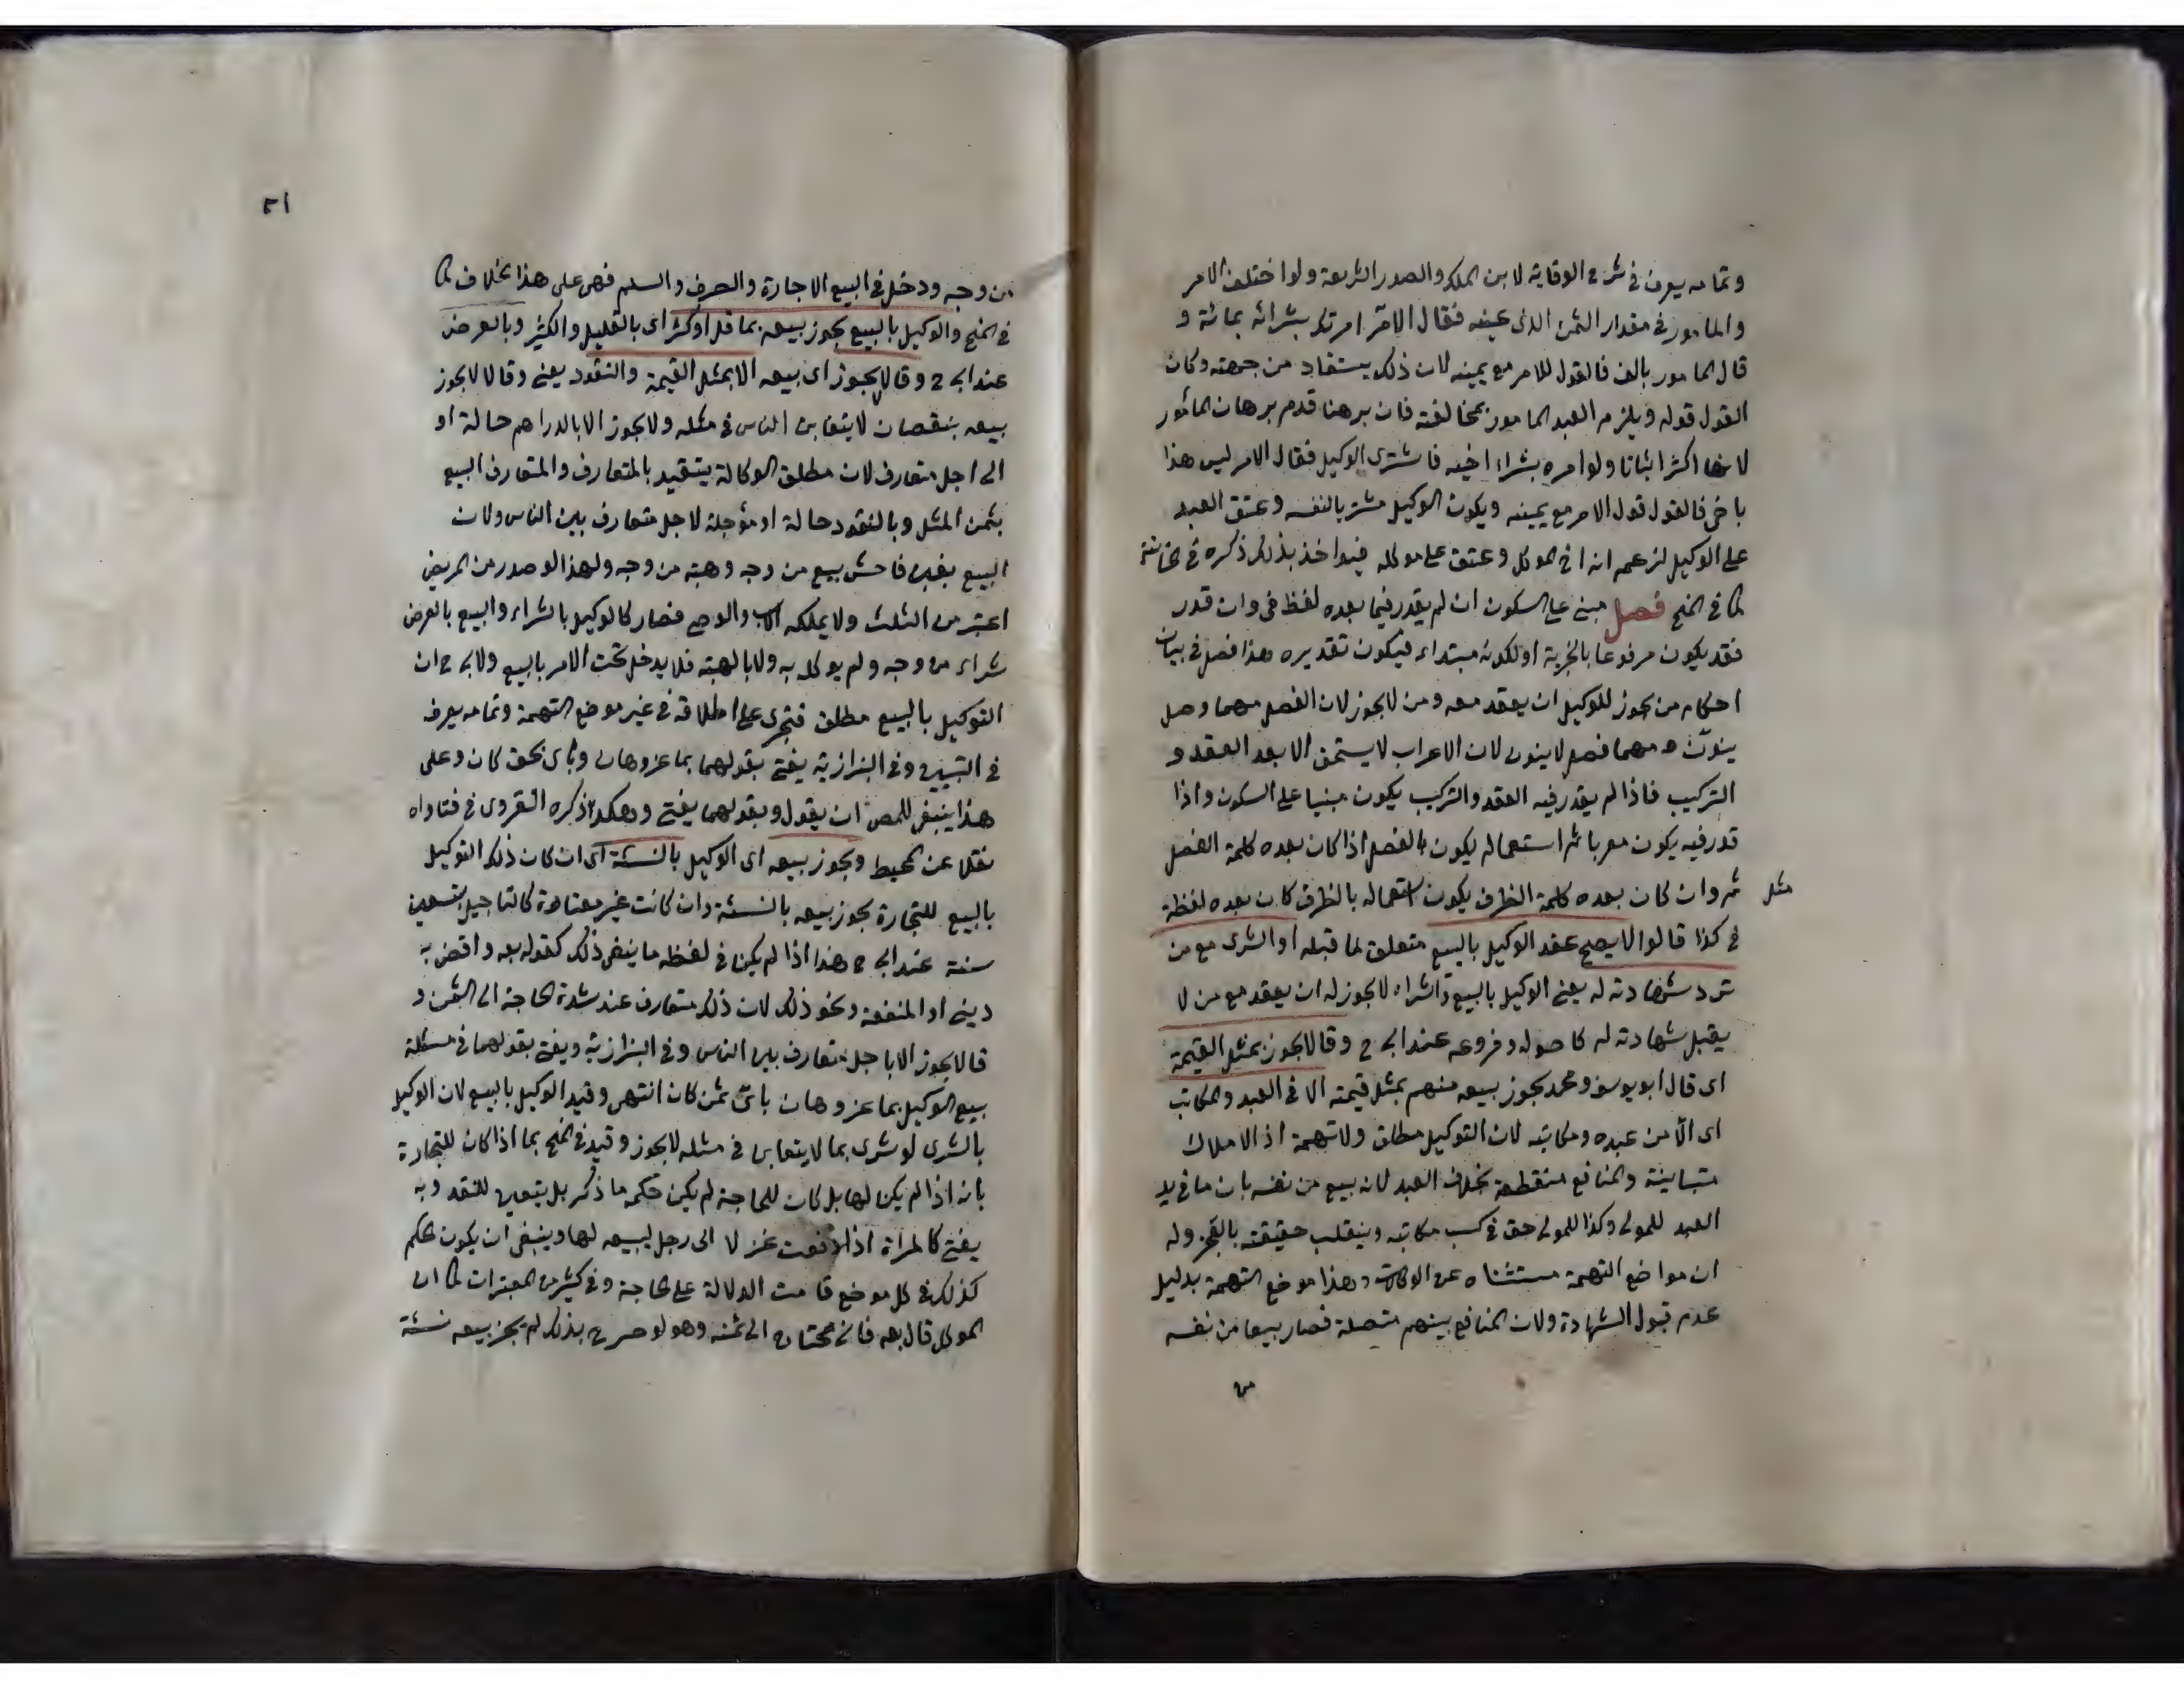 وتمامه يعرف في شرح الوقاية لابن الملك والصدر الشريعة ولو اختلف الامر
والمامور في مقدار الثمن الذى عينه فقال الآمر امرتك بشرائه بمائة و
قال المامور بالف فالقول للامر مع يمينه لان ذلك يستفاد من جهته وكان
القول قوله ويلزم العبد المامور بمخالفته فان برهنا قدم برهان المأمور
لانها اكثر اثباتا ولو امره بشراء اخيه فاشترى الوكيل فقال الامر ليس هذا
باخى فالقول قول الامر مع يمينه ويكون الوكيل مشتريا لنفسه وعتق العبد
على الوكيل لزعمه انه اخ الموكل وعتق على موكله فيواخذ بذلك ذكره في الخانية
كما في المنح فصل مبنى على السكون ان لم يقدر فيما بعده لفظ في وان قدر
فقد يكون مرفوعا بالخبرية او لكونه مبتداء فيكون تقديره هذا فصل في بيان
احكام من يجوز للوكيل ان يعقد معه ومن لا يجوز لان الفصل مهما وصل
ينون ومهما فصل لا ينون لان الاعراب لا يستحق الا بعد العقد و
التركيب فاذا لم يقدر فيه العقد والتركيب يكون مبنيا على السكون واذا
قدر فيه يكون معربا ثم استعماله يكون بالفصل اذا كان بعده كلمة الفصل
مثل
ثم وان كان بعده كلمة الظرف يكون استعماله بالظرف كان بعده لفظة
في كذا قالوا لا يصح عقد الوكيل بالبيع متعلق لما قبله او الشرى مع من
ترد شهادته له يعنى الوكيل بالبيع والشراء لا يجوز له ان يعقد مع من لا
يقبل شهادته له كاصوله وفروعه عند ابى ح وقالا يجوز بمثل القيمة
اى قال ابو يوسف ومحمد يجوز بيعه منهم بمثل قيمته الا في العبد والمكاتب
اى الّا من عبده ومكاتبه لان التوكيل مطلق ولا تهمة اذ الاملاك
متباينة والمنافع منقطعة بخلاف العبد لانه بيع من نفسه بان ما في يد
العبد للمولى وكذا للمولى حق في كسب مكاتبه وينقلب حقيقته بالعجز وله
ان مواضع التهمة مستثناه عن الوكالات وهذا موضع التهمة بدليل
عدم قبول الشهادة ولان المنافع بينهم متصلة فصار بيعا من نفسه
من
٢١
من وجه ودخل في البيع الاجارة والصرف والسلم فهى على هذا الخلاف كما
في المنح والوكيل بالبيع يجوز بيعه بما قل او كثر اى بالقليل والكثير وبالعرض
عند ابى ح وقالا لا يجوز اى بيعه الا بمثل القيمة والنقود يعنى وقالا لا يجوز
بيعه بنقصان لا يتغابن الناس في مثله ولا يجوز الا بالدراهم حالة او
الى اجل متعارف لان مطلق الوكالة يتقيد بالمتعارف والمتعارف البيع
بثمن المثل وبالنقود حالة او مؤجلة لاجل متعارف بين الناس ولان
البيع بغبن فاحش بيع من وجه وهبة من وجه ولهذا لو صدر من المريض
اعتبر من الثلث ولا يملكه الاب والوصى فصار كالوكيل بالشراء والبيع بالعرض
شراء من وجه ولم يوكله به ولا بالهبة فلا يدخل تحت الامر بالبيع ولابى ح ان
التوكيل بالبيع مطلق فيجرى على اطلاقه في غير موضع التهمة وتمامه يعرف
في التبيين وفي البزازية يفتى بقولهما بما عز وهان وباى نحو كان وعلى
هذا ينبغى للمص ان يقول وبقولهما يفتى وهكذا ذكره القروى في فتاواه
نقلا عن المحيط ويجوز بيعه اى الوكيل بالنسئة اى ان كان ذلك التوكيل
بالبيع للتجارة يجوز بيعه بالنسئة وان كانت غير معتادة كالتاجيل بتسعين
سنة عند ابى ح وهذا اذا لم يكن في لفظه ما ينفى ذلك كقوله بعه واقض به
دينى او المنفعة ونحو ذلك لان ذلك متعارف عند شدة الحاجة الى الثمن و
قالا يجوز الا باجل متعارف بين الناس وفي البزازية ويفتى بقولهما في مسئلة
بيع الوكيل بما عز وهان باى ثمن كان انتهى وقيد الوكيل بالبيع لان الوكيل
بالشرى لو شرى بما لا يتغابن في مثله لا يجوز وقيد في المنح بما اذا كان للتجارة
بانه اذا لم يكن لها بل كان للحاجة لم يكن حكمه ما ذكر بل يتعين للنقد وبه
يفتى كالمراة اذا دفعت غزلا الى رجل ليبيعه لها وينبغى ان يكون الحكم
كذلك في كل موضع قامت الدلالة على الحاجة وفي كثير من المعتبرات كما ان
الموكل قال بعه فانى محتاج الى ثمنه وهو لو صرح بذلك لم يجز بيعه نسئة